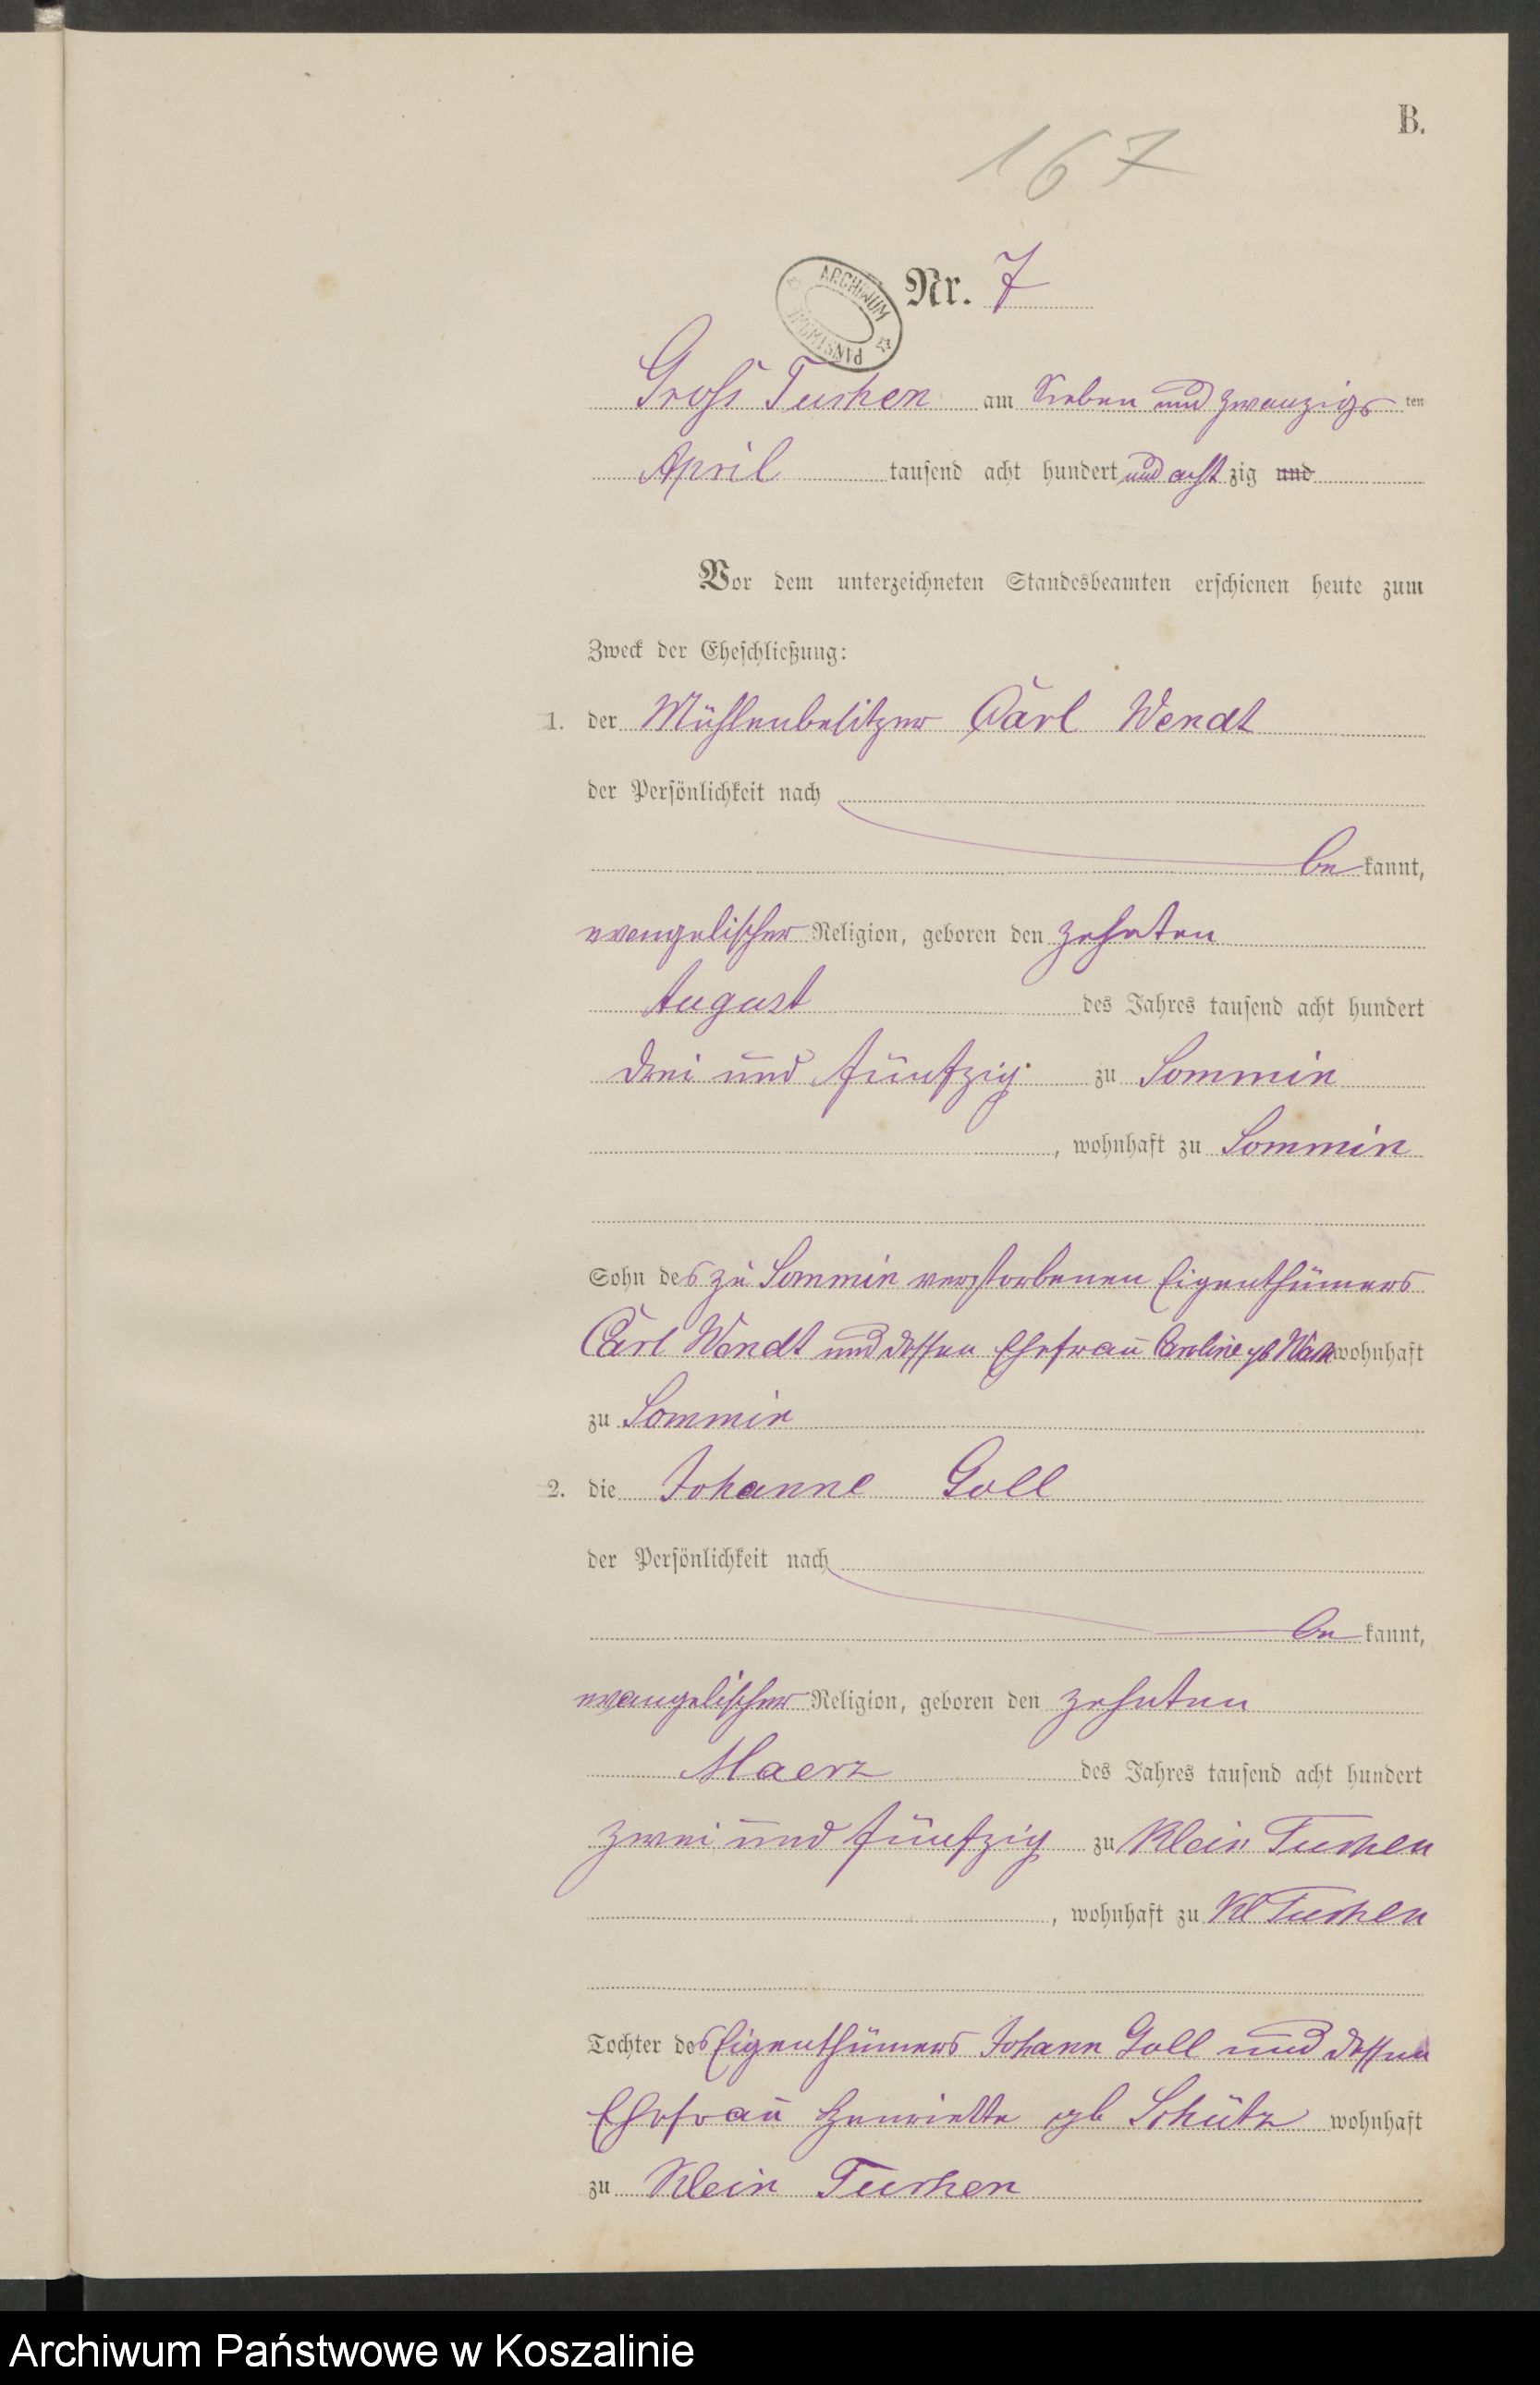 B.
167
Nr. 7
ARCHIWUM
PAŃSTWOWE
Gross Tuchen am Sieben und zwanzigs ten
April tausend acht hundert und acht zig und
Vor dem unterzeichneten Standesbeamten erschienen heute zum
Zweck der Eheschließung:
1. der Mühlenbesitzer Carl Wendt
der Persönlichkeit nach
be kannt,
evangelischer Religion, geboren den zehnten
August des Jahres tausend acht hundert
drei und fünfzig zu Sommin
, wohnhaft zu Sommin
Sohn des zu Sommin verstorbenen Eigenthümers
Carl Wendt und dessen Ehefrau Caroline gb wohnhaft
zu Sommin
2. die Johanne Goll
der Persönlichkeit nach
be kannt,
evangelischer Religion, geboren den zehnten
Maerz des Jahres tausend acht hundert
zwei und fünfzig zu Klein Tuchen
, wohnhaft zu Kl Tuchen
Tochter des Eigenthümers Johann Goll und dessen
Ehefrau Henriette gb Schütz wohnhaft
zu Klein Tuchen
Archiwum Państwowe w Koszalinie